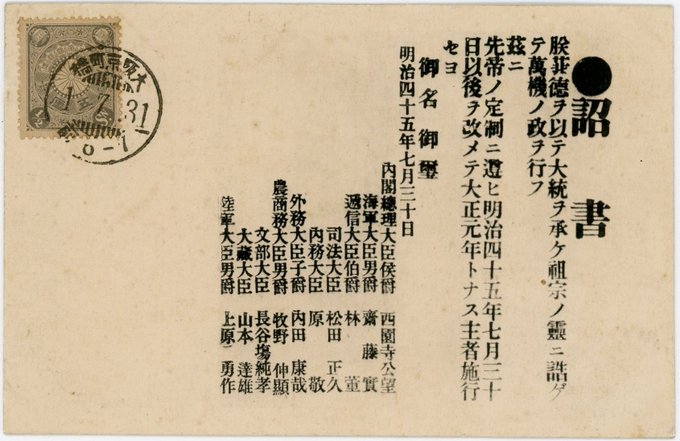 ●詔書
朕菲徳ヲ以テ大統ヲ承ケ祖宗ノ靈ニ誥ゲ
テ萬機ノ政ヲ行フ
茲ニ
先帝ノ定制ニ遵ヒ明治四十五年七月三十
日以後ヲ改メテ大正元年トナス主者施行
セヨ
御名御璽
明治四十五年七月三十日
內閣總理大臣侯爵 西園寺公望
海軍大臣男爵 齋藤實
遞信大臣伯爵 林董
司法大臣 松田正久
內務大臣 原敬
外務大臣子爵 內田康哉
農商務大臣男爵 牧野伸顯
文部大臣 長谷塲純孝
大藏大臣 山本達雄
陸軍大臣男爵 上原勇作
1.7.31